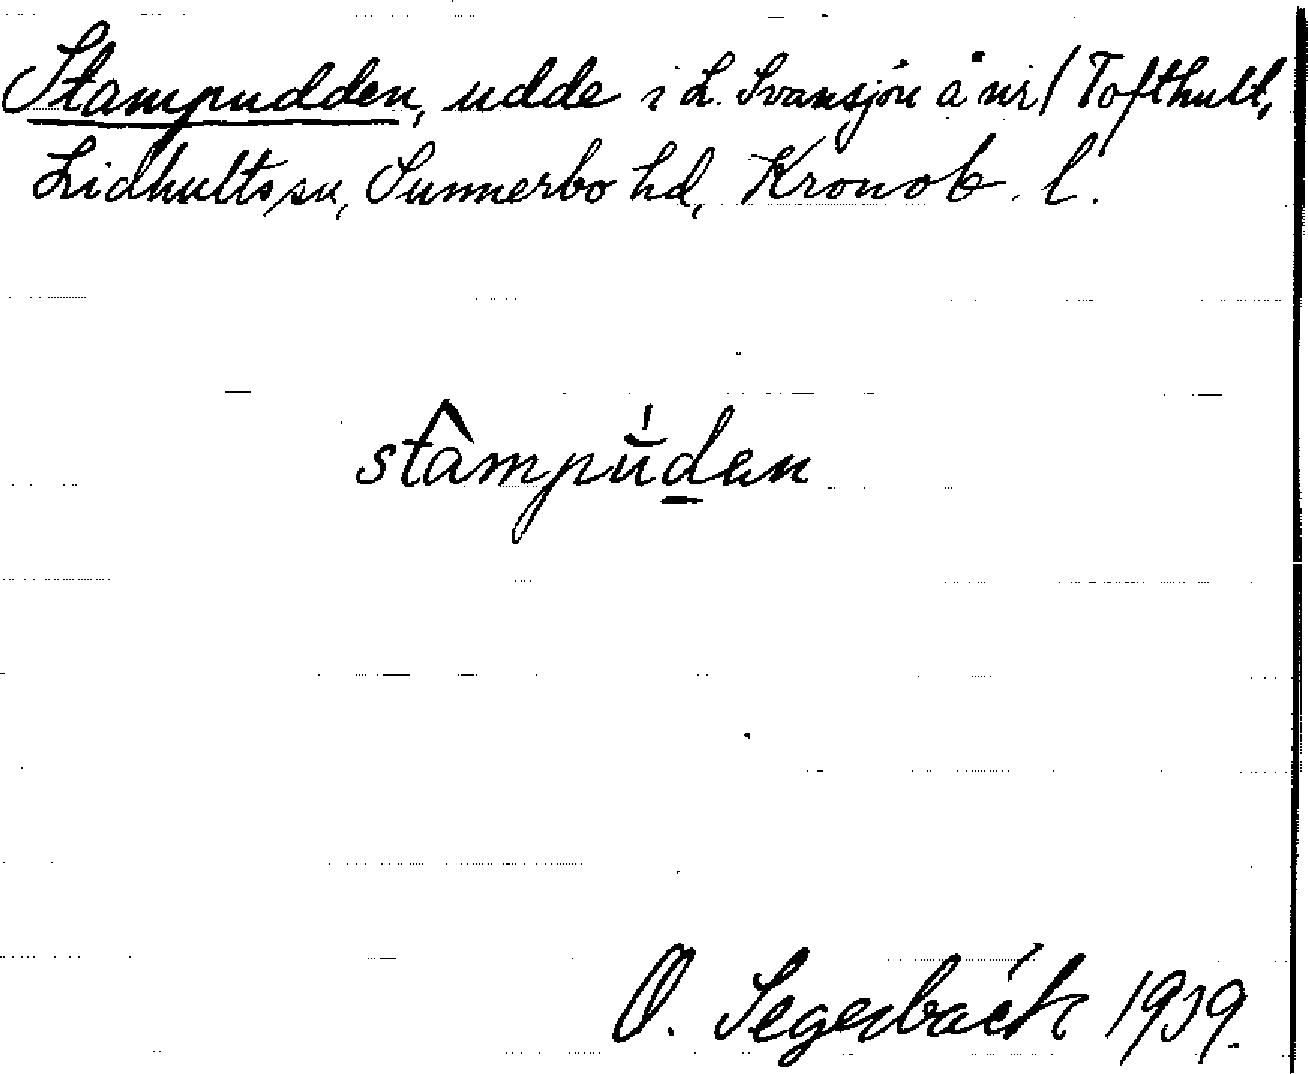 Stampudden, udde i L. Svansjön å nr 1 Tofthult,
Lidhults sn, Sunnerbo hd, Kronob. l.
stâmpŭ́d̲en
O. Segerbäck 1939.